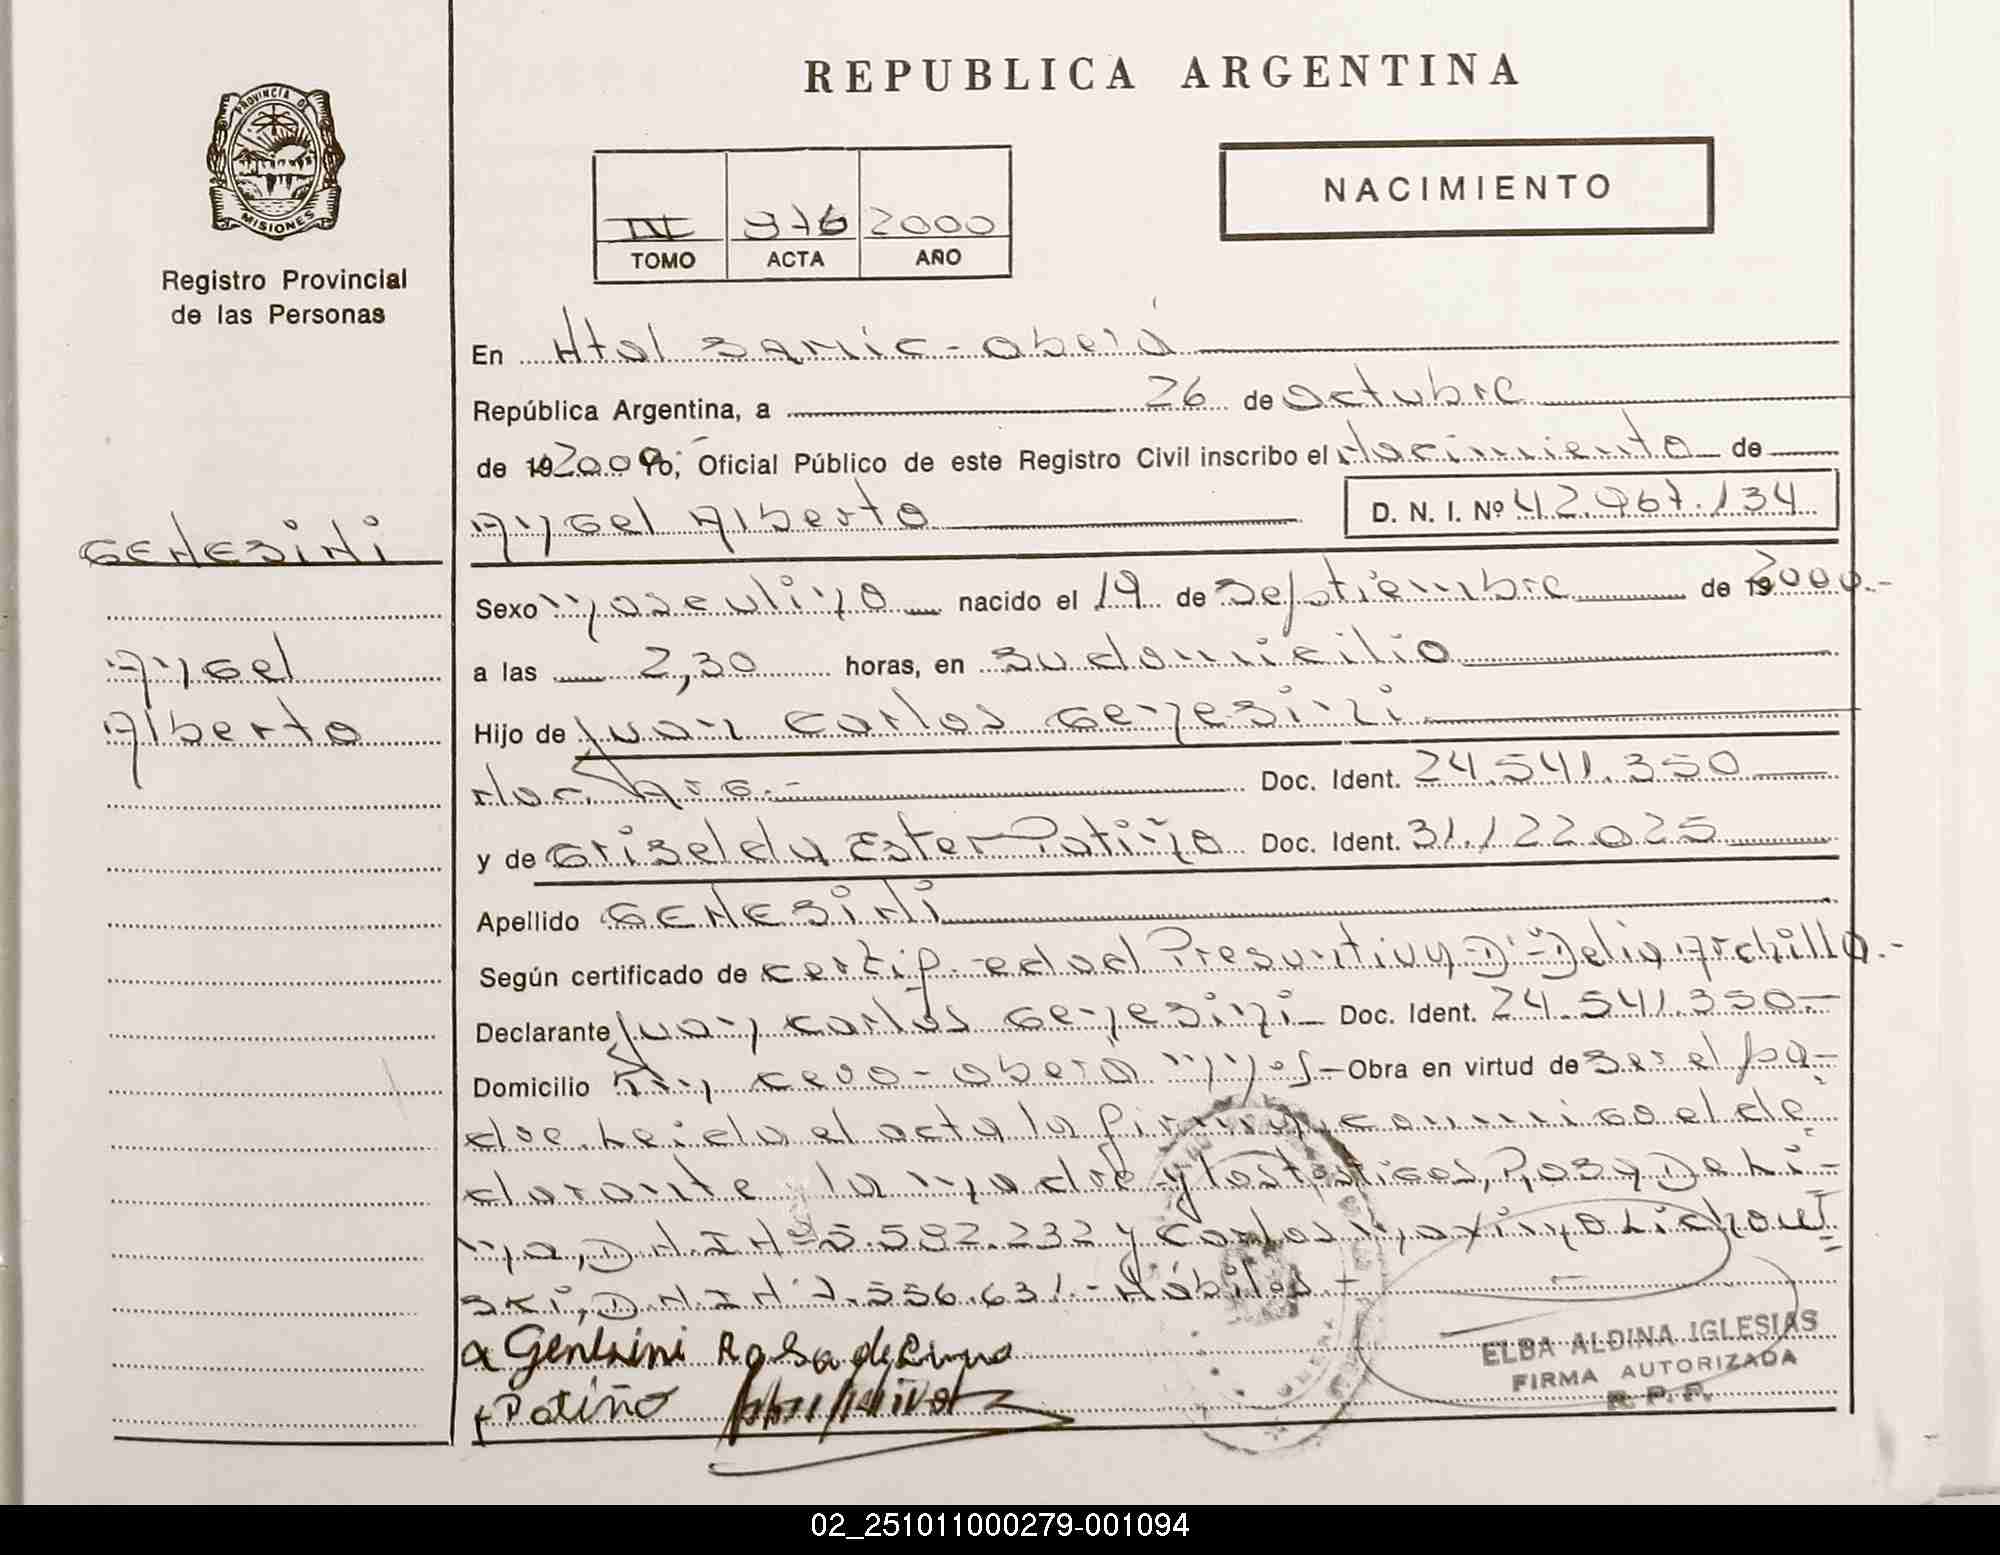 REPUBLICA ARGENTINA
PROVINCIA DE
MISIONES
Registro Provincial
de las Personas
IV 976 2000
TOMO ACTA AÑO
NACIMIENTO
En Htal Samic - Oberá
República Argentina, a 26 de Octubre
de 19 2000 Yo, Oficial Público de este Registro Civil inscribo el Nacimiento de
Angel Alberto D. N. I. Nº 42.967.134
GENESINI
Angel
Alberto
Sexo Masculino nacido el 19 de Septiembre de 19 2000.-
a las 2,30 horas, en su domicilio
Hijo de Juan Carlos Genesini
Nac. Arg.- Doc. Ident. 24.541.350
y de Griselda Ester Patiño Doc. Ident. 31.122.025
Apellido GENESINI
Según certificado de certif. edad Presuntiva Dª Delia Archilla.-
Declarante Juan Carlos Genesini Doc. Ident. 24.541.350.-
Domicilio - Oberá Mnes - Obra en virtud de ser el pa-
dre. Leida el acta la firman conmigo el de-
clarante, la madre y los testigos, Rosa De Li-
ma, D.N.I Nº 5.592.232 y Carlos Maximo Lichow
ski, D.N.I Nº 7.556.631.- Hábiles -
Genesini Rosa de Lima
Patiño
ELBA ALDINA IGLESIAS
FIRMA AUTORIZADA
R. P. P.
02_251011000279-001094